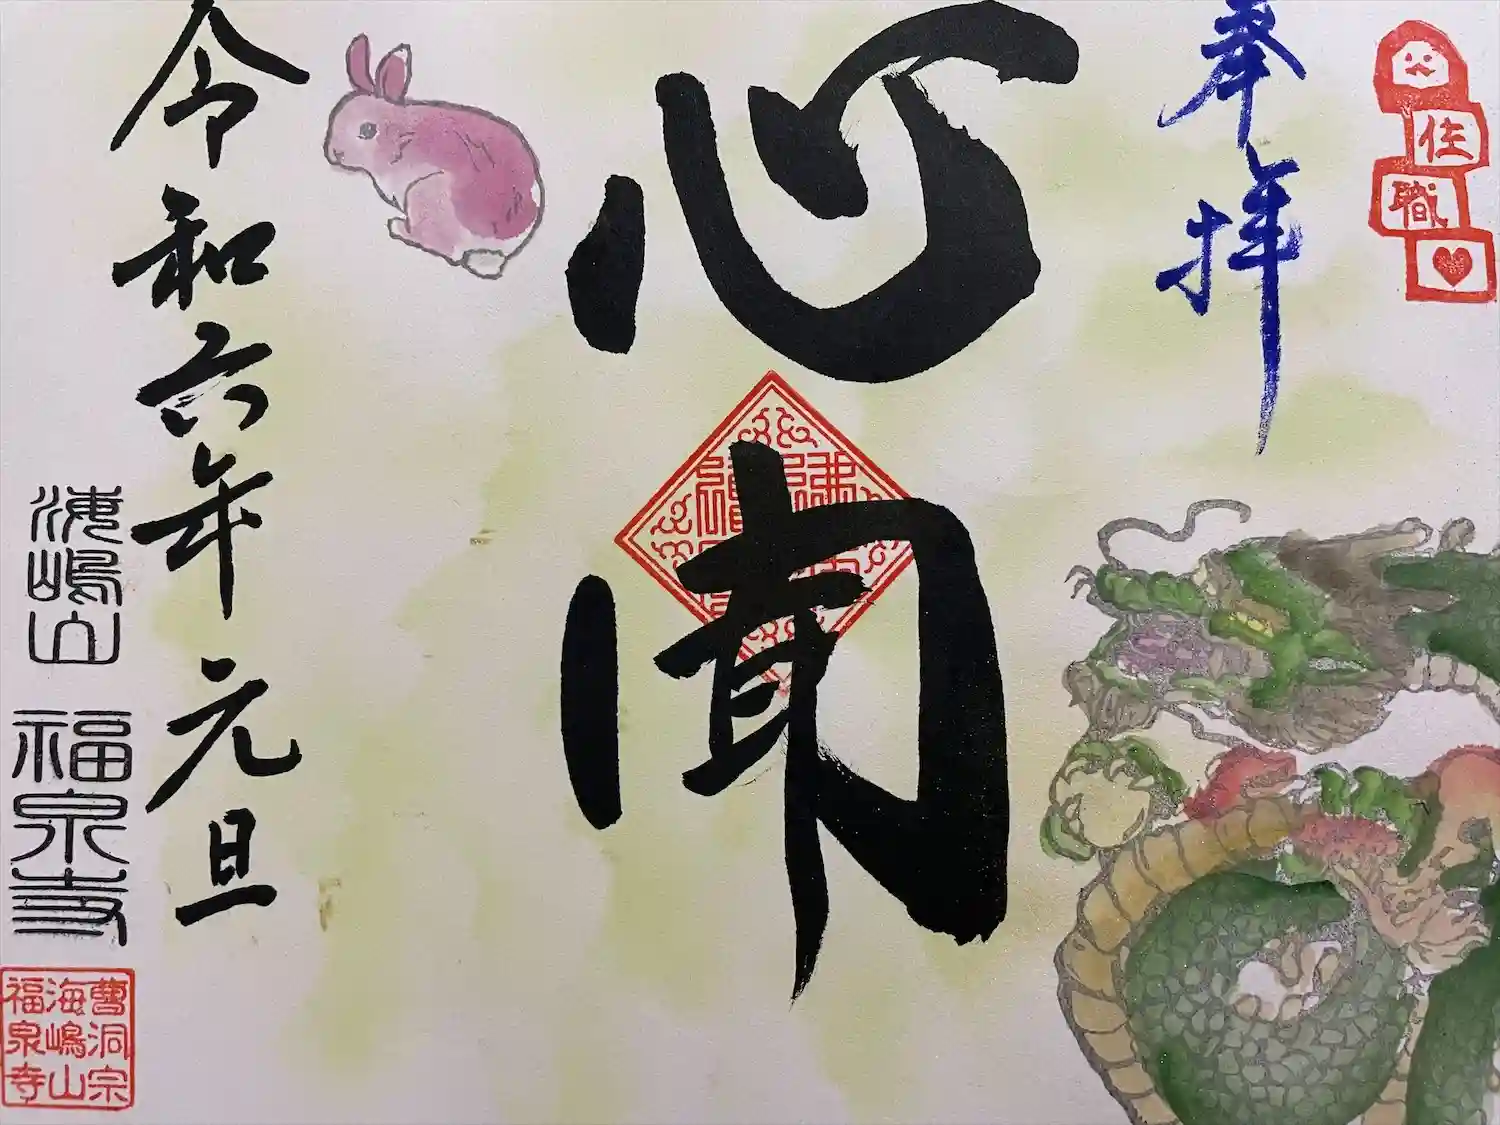 住職
奉拝
心聞
令和六年元旦
海嶋山 福泉寺
曹洞宗
海嶋山
福泉寺